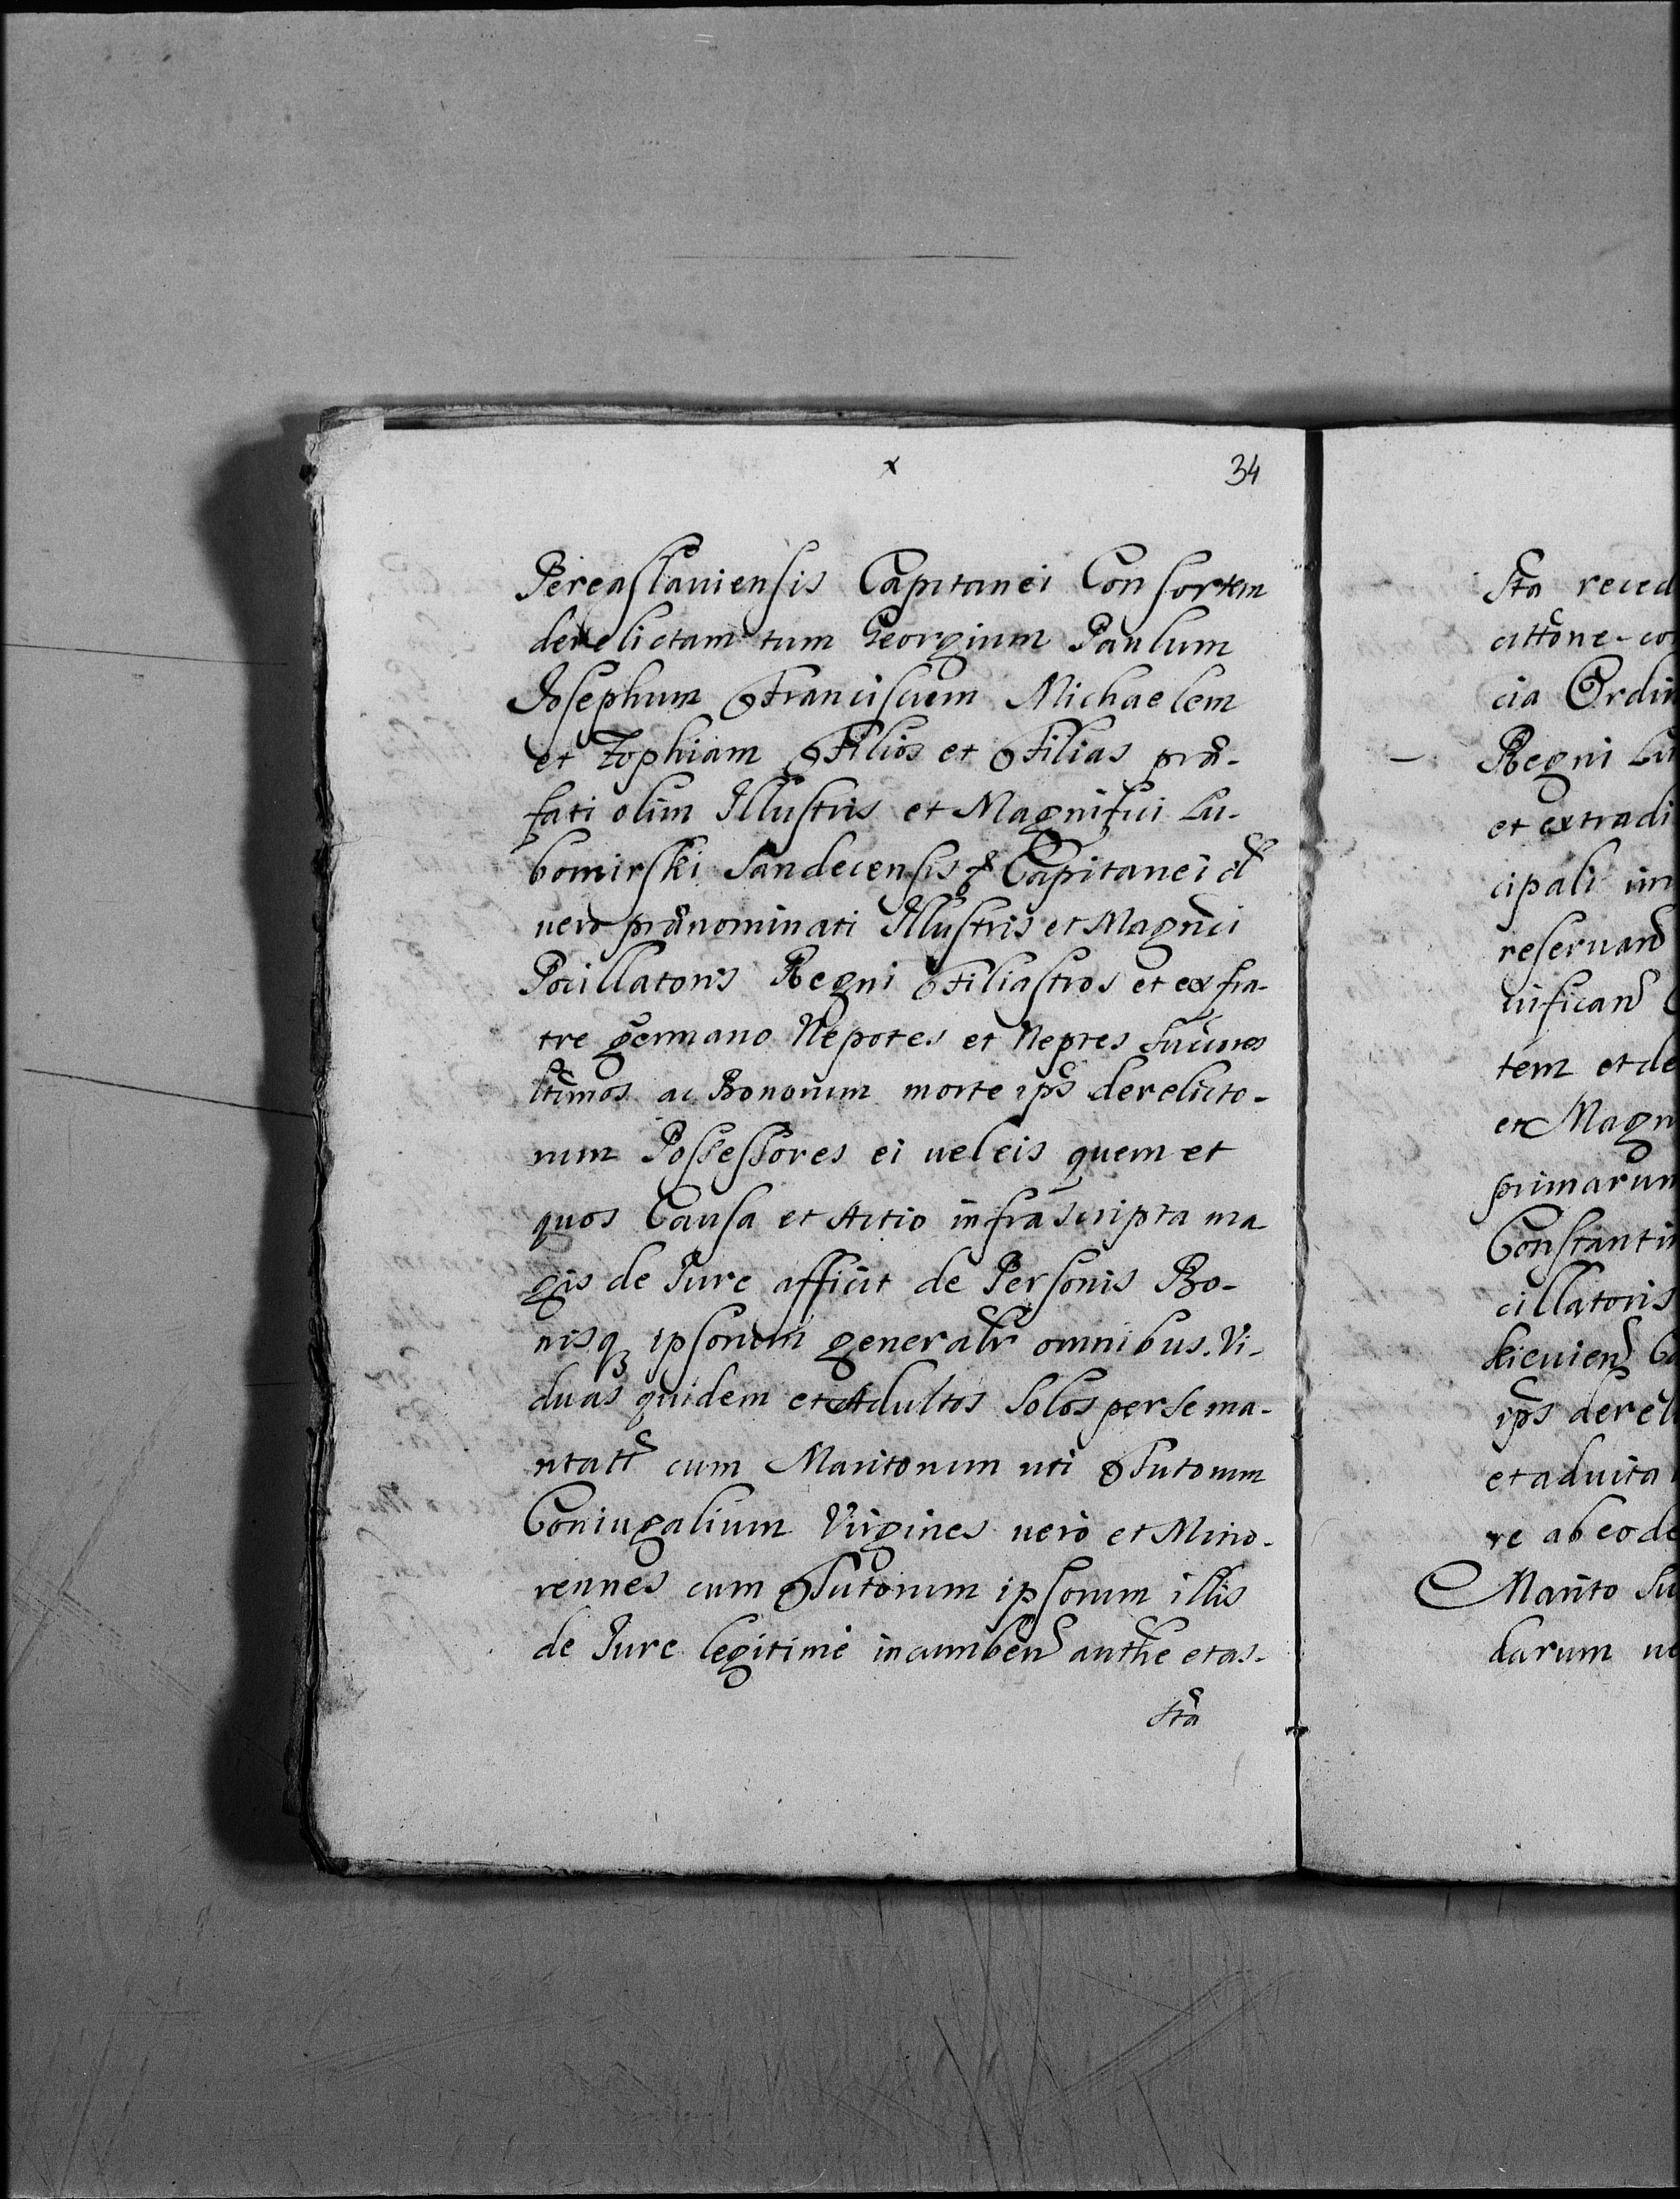 x 34
Pereaslaviensis Capitanei Consortem
derelictam tum Georgium Paulum
Josephum Franciscum Michaelem
et Zophiam Filios et Filias præ-
fati olim Illustris et Magnifici Lu-
bomirski Sandecensis Capitanei
vero prænominati Illustris et Magnci
Pocillatoris Regni Filiastros et ex fra-
tre germano Nepotes et Neptes Succnes
ltimos ac Bonorum morte ips derelicto-
rum Possessores ei vel eis quem et
quos Causa et Actio infrascripta ma
gis de Jure afficit de Personis Bo-
nisq ipsorum generalr omnibus. Vi-
duas quidem et Adultos solos per se ma-
ritatt cum Maritorum uti Tutorum
Coniugalium Virgines vero et Mino-
rennes cum Tutorum ipsorum illis
de Jure legitime incumben authe et as-
sta
sta reced
cittone co
cia Ordin
Regni Lu
et extradi
cipali im
reservand
nificand
tem et de
et Magn
primarum
Constantin
cillatoris
kievien Ca
ips derel
et advita
re ab eode
Marito su
darum ve